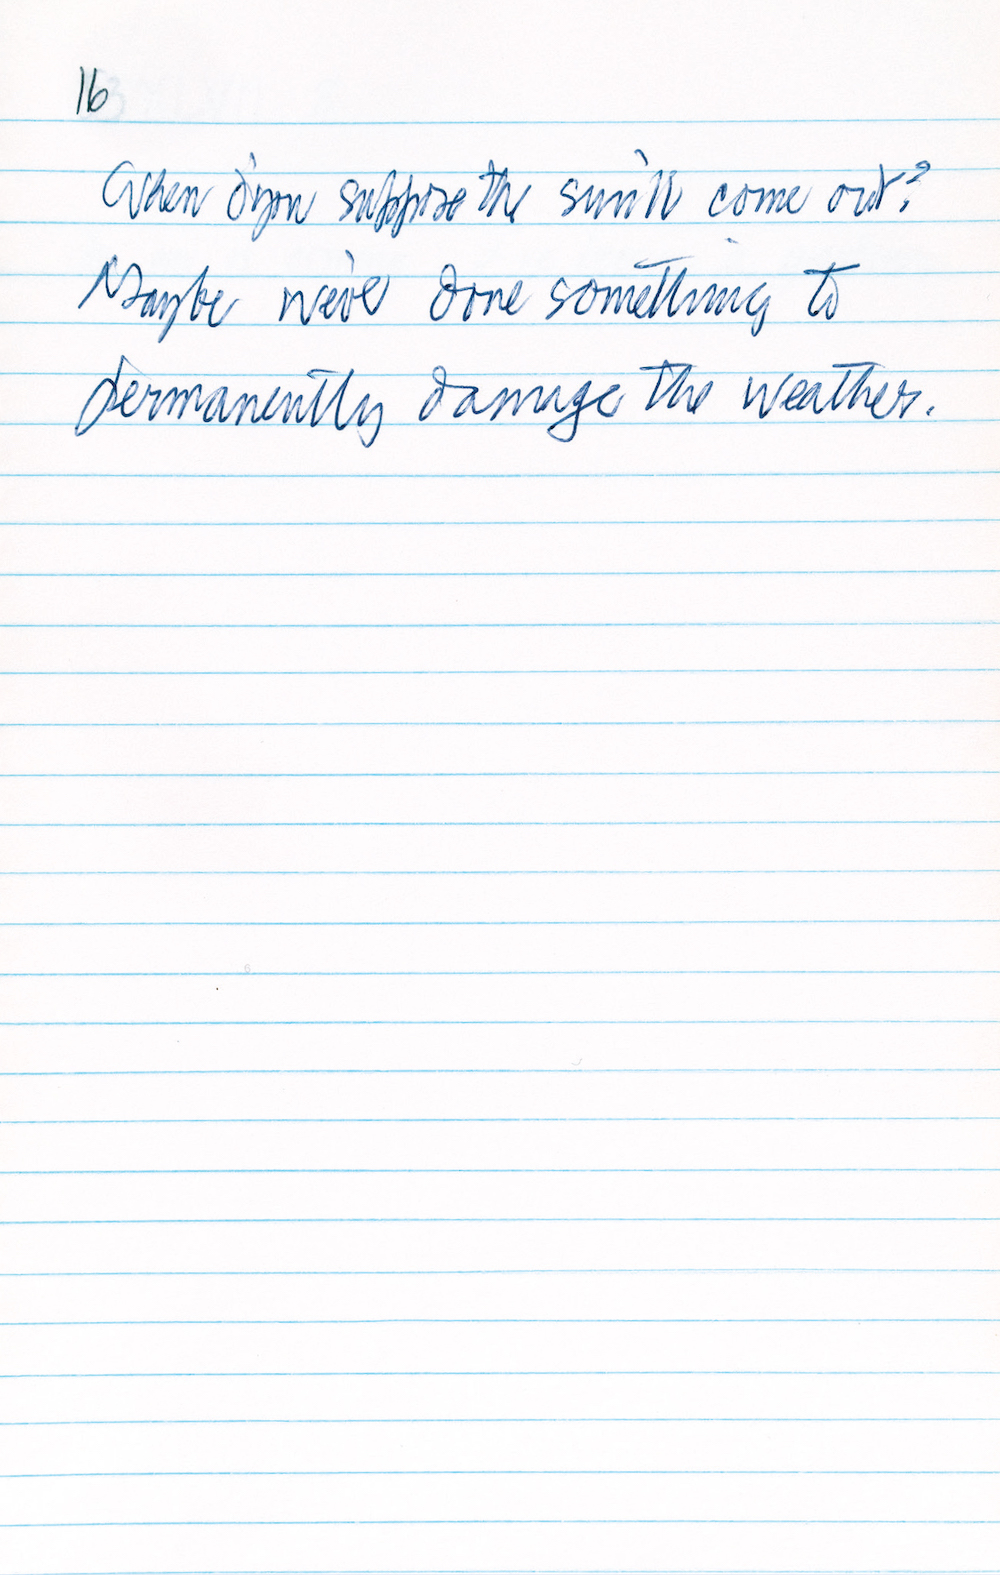 16
When d'you suppose the sun'll come out?
Maybe we've done something to
permanently damage the weather.